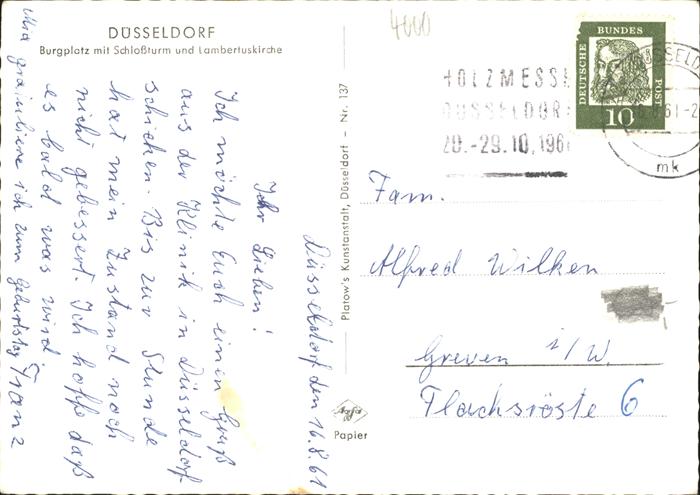 DÜSSELDORF
Burgplatz mit Schloßturm und Lambertuskirche
4000
Düsseldorf den 16.8.61
Ihr Lieben!
Ich möchte Euch einen Gruß
aus der Klinik in Düsseldorf
schicken. Bis zur Stunde
hat mein Zustand noch
nicht gebessert. Ich hoffe daß
es bald was wird.
Franz
ich zum Geburtstag
Platow's Kunstanstalt, Düsseldorf - Nr. 137
Agfa
Papier
HOLZMESSE
DÜSSELDORF
20.-29.10.196
DÜSSELDO
61-2
mk
DEUTSCHE
BUNDES
POST
10
Fam.
Alfred Wilken
Greven i/W.
Flachsröste 6